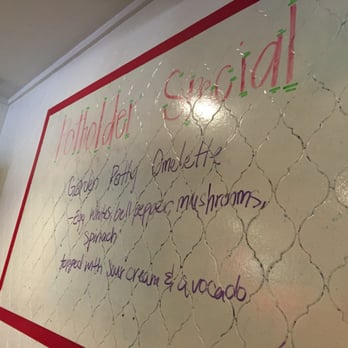 Potholder Special
Garden Patty Omelette
-Egg whites, bell pepper, mushrooms,
spinach
topped with sour cream & avocado